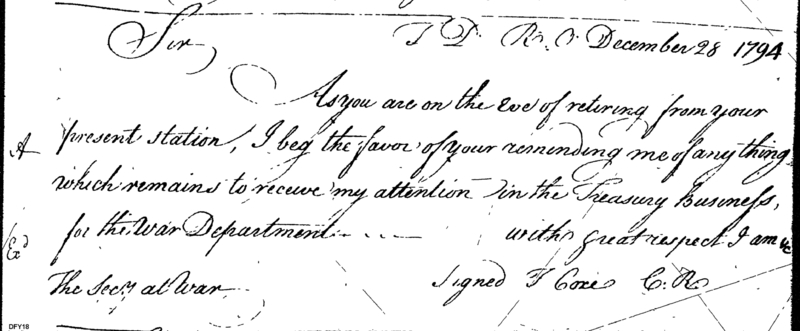 Sir, T D R. O December 28 1794
As you are on the Eve of retiring from your
A present station, I beg the favor of your reminding me of any thing
which remains to receive my attention in the Treasury Business,
Exd for the War Department - - - - with great respect I am &c
The Secy at War Signed T Coxe C. R
DFY18